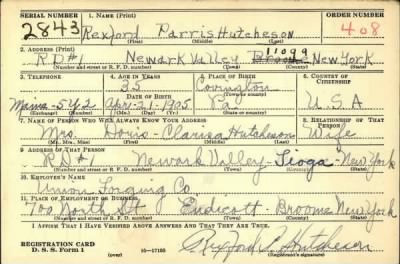 SERIAL NUMBER 1. NAME (Print) ORDER NUMBER
2843 Rexford Parris Hutcheson 408
(First) (Middle) (Last)
2. ADDRESS (Print)
RD#1 Newark Valley Tioga New York
(Number and street or R. F. D. number) (Town) (County) (State)
3. TELEPHONE 4. AGE IN YEARS 5. PLACE OF BIRTH 6. COUNTRY OF CITIZENSHIP
35 Covington
DATE OF BIRTH
Mains-5Y2 Apr-21-1905 Pa. U.S.A
(Exchange) (Number) (Mo.) (Day) (Yr.) (State or country)
7. NAME OF PERSON WHO WILL ALWAYS KNOW YOUR ADDRESS 8. RELATIONSHIP OF THAT PERSON
Mrs. Doris-Clarisa Hutcheson Wife
(Mr., Mrs., Miss) (First) (Middle) (Last)
9. ADDRESS OF THAT PERSON
RD#1 Newark Valley-Tioga-New York
(Number and street or R. F. D. number) (Town) (County) (State)
10. EMPLOYER'S NAME
Union Forging Co.
11. PLACE OF EMPLOYMENT OR BUSINESS
700 North St Endicott-Broome New York
(Number and street or R. F. D. number) (Town) (County) (State)
I AFFIRM THAT I HAVE VERIFIED ABOVE ANSWERS AND THAT THEY ARE TRUE.
REGISTRATION CARD
D. S. S. Form 1 (over) 16-17105 Rexford P. Hutcheson
(Registrant's signature)